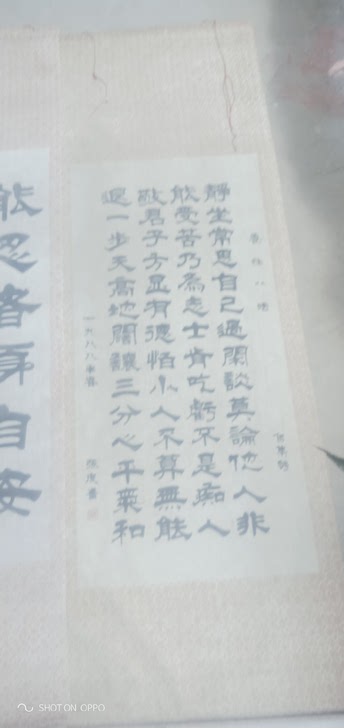 靜坐常思自己過閑談莫論他人非
能受苦乃為志士肯吃虧不是痴人
敬君子方显有德怕小人不算無能
退一步天高地闊讓三分心平氣和
一九八八年春
能忍者身自安
SHOT ON OPPO